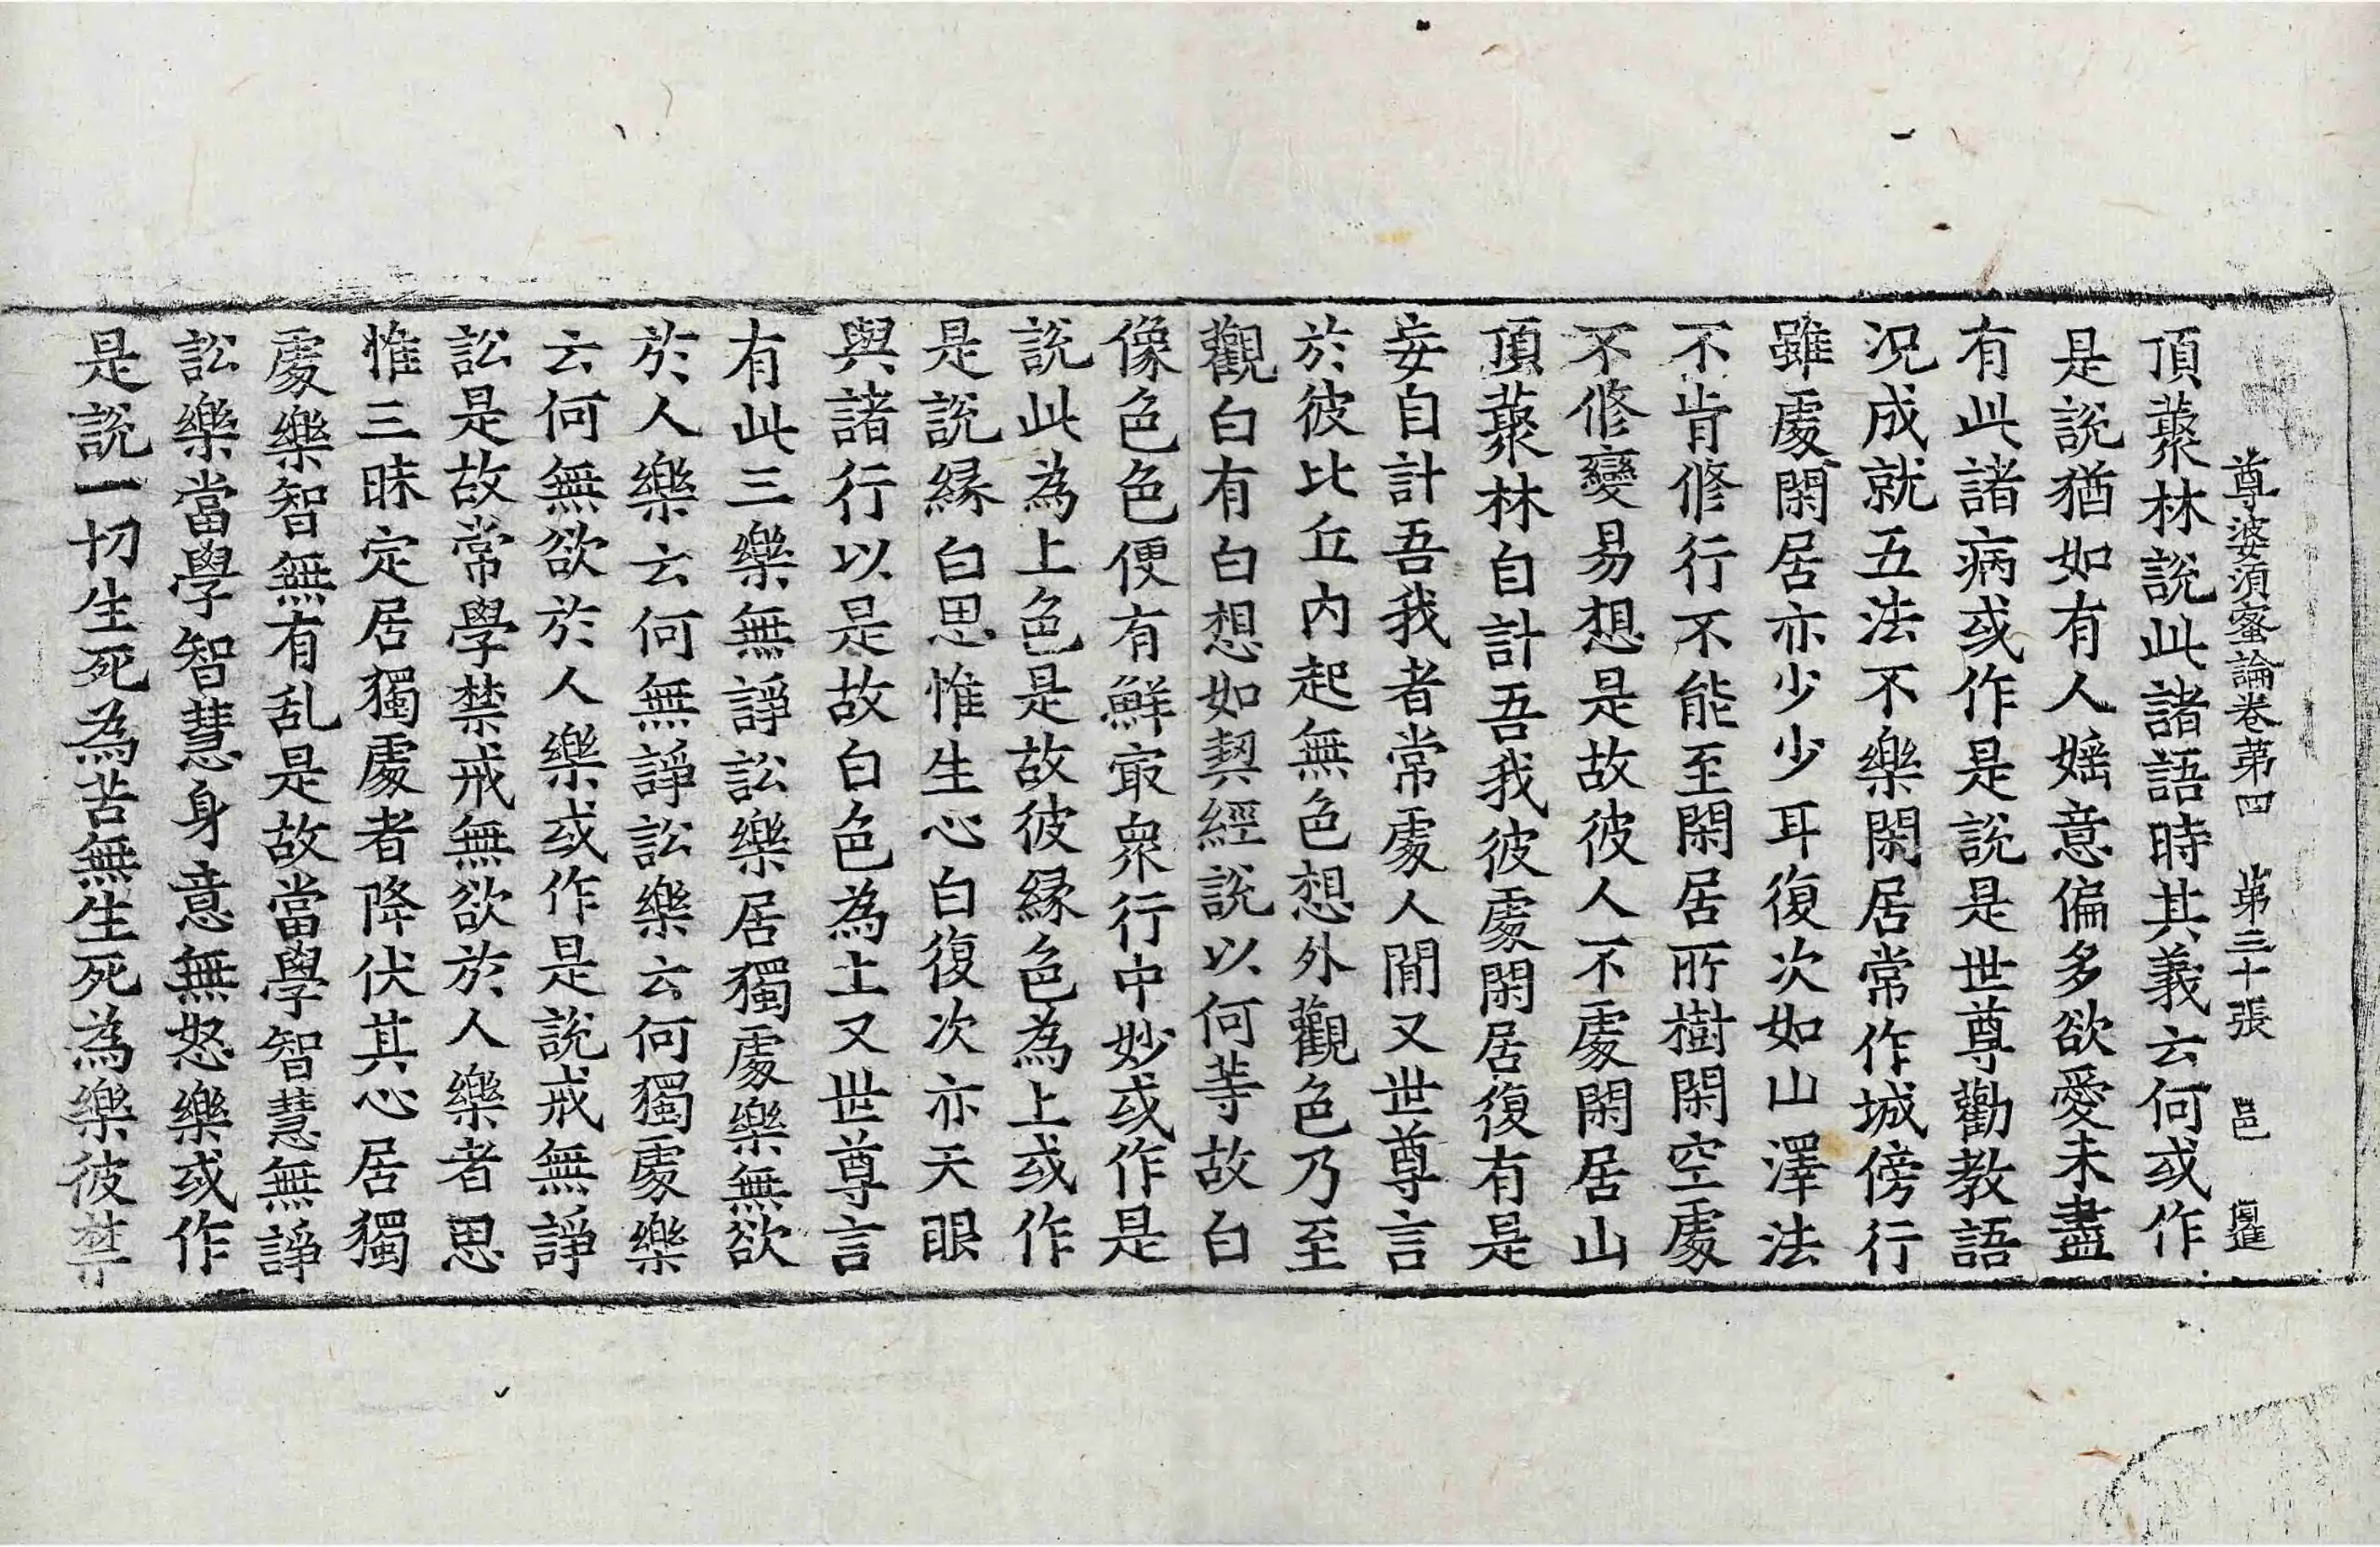 尊婆須蜜論卷第四 第三十張 邑
頂藂林說此諸語時其義云何或作
是說猶如有人婬意偏多欲愛未盡
有此諸病或作是說是世尊勸教語
況成就五法不樂閑居常作城傍行
雖處閑居亦少少耳復次如山澤法
不肯修行不能至閑居所樹閑空處
不修變易想是故彼人不處閑居山
頂藂林自計吾我彼處閑居復有是
妄自計吾我者常處人間又世尊言
於彼比丘內起無色想外觀色乃至
觀白有白想如契經說以何等故白
像色色便有鮮冣衆行中妙或作是
說此為上色是故彼緣色為上或作
是說緣白思惟生心白復次亦天眼
與諸行以是故白色為上又世尊言
有此三樂無諍訟樂居獨處樂無欲
於人樂云何無諍訟樂云何獨處樂
云何無欲於人樂或作是說戒無諍
訟是故常學禁戒無欲於人樂者思
惟三昧定居獨處者降伏其心居獨
處樂智無有乱是故當學智慧無諍
訟樂當學智慧身意無怒樂或作
是說一切生死為苦無生死為樂彼禁